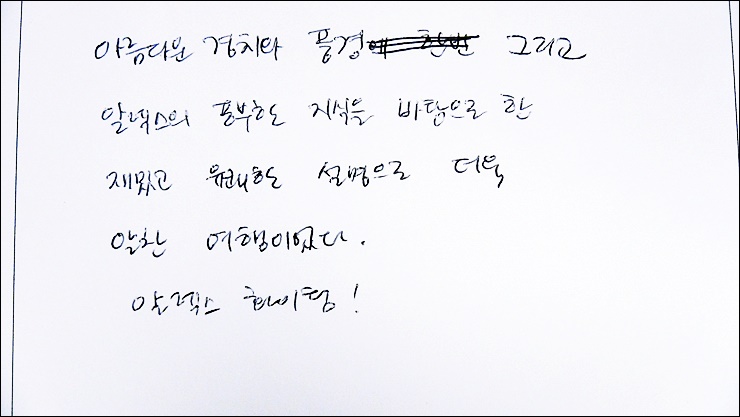 아름다운 경치와 풍경 그리고
알렉스의 풍부한 지식을 바탕으로 한
재밌고 유쾌한 설명으로 더욱
알찬 여행이었다.
알렉스 화이팅!